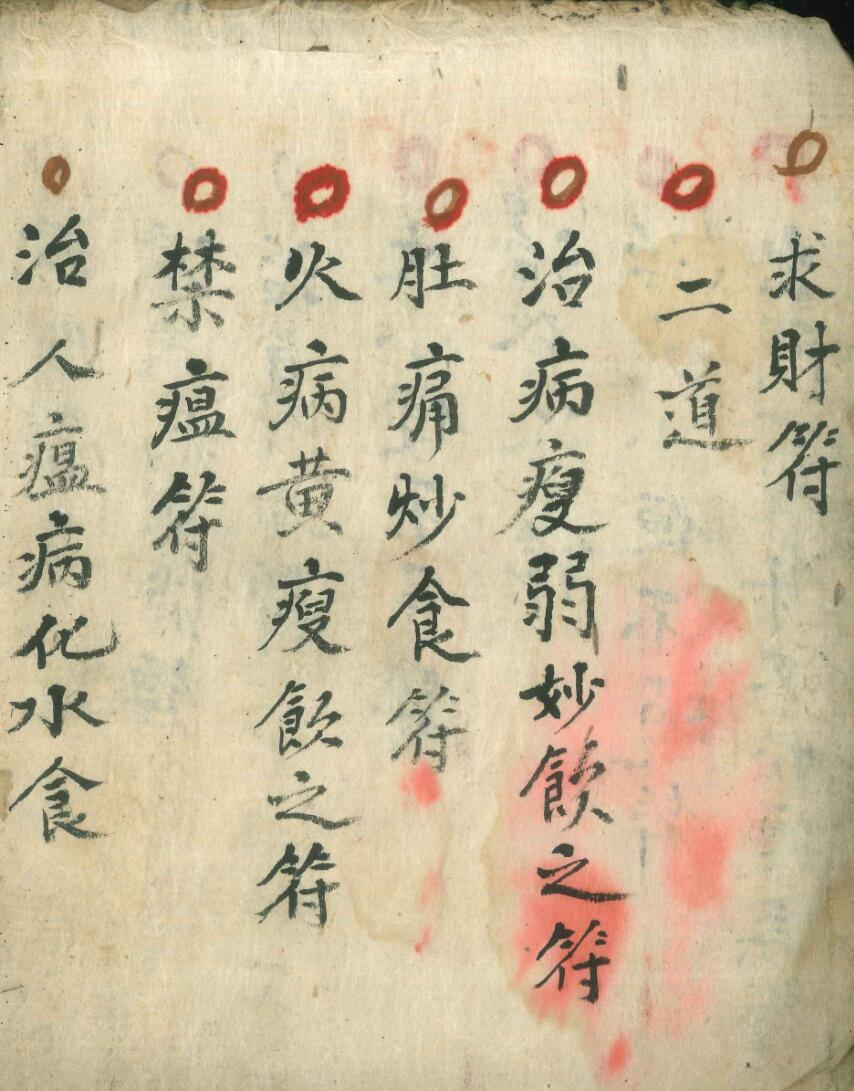 求財符
二道
治病瘦弱妙飲之符
肚痛炒食符
火病黃瘦飲之符
禁瘟符
治人瘟病化水食